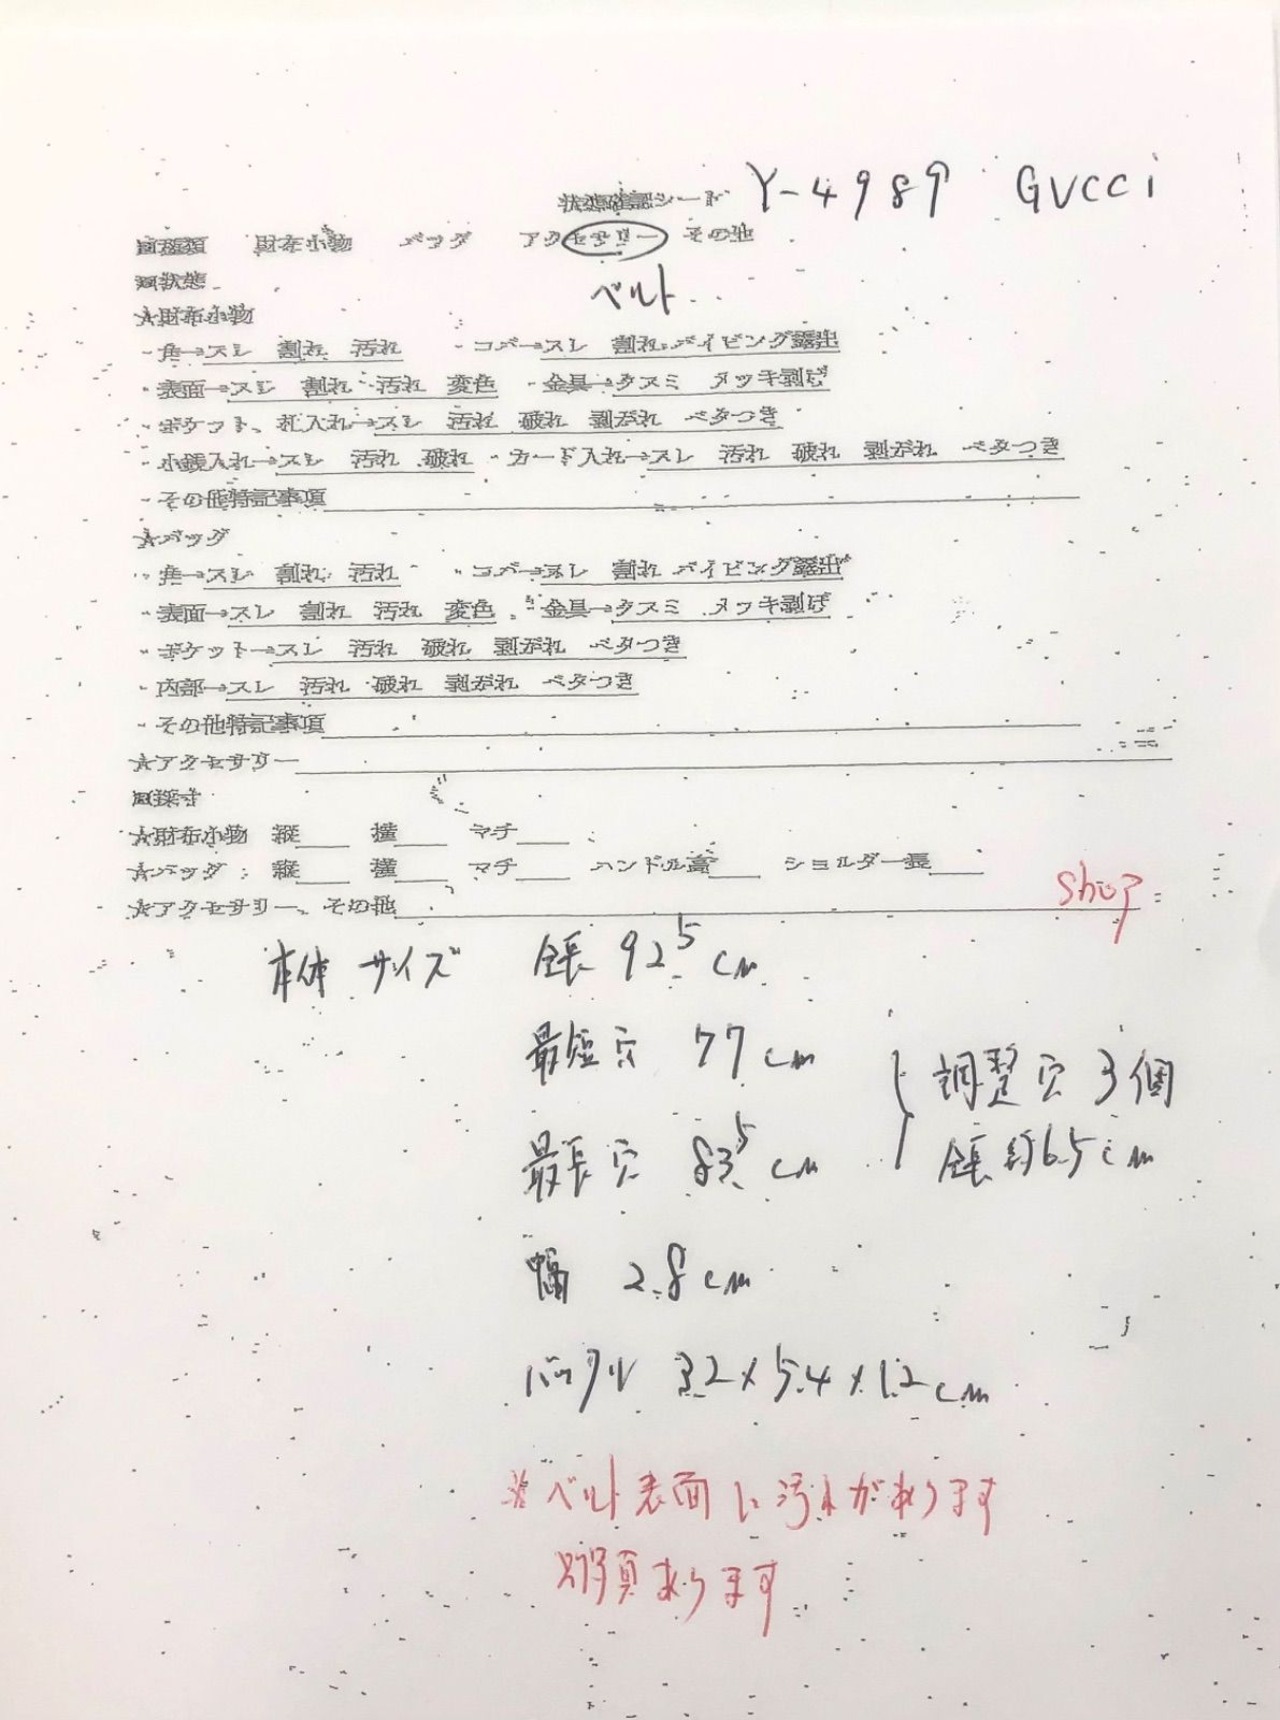 状態確認シート Y-4989 GUCCI
■種類 財布小物 バッグ アクセサリー その他
■状態 ベルト
☆財布小物
・角→スレ 割れ 汚れ ・コバ→スレ 割れ パイピング露出
・表面→スレ 割れ 汚れ 変色 ・金具→クスミ メッキ剥げ
・ポケット、札入れ→スレ 汚れ 破れ 剥がれ ベタつき
・小銭入れ→スレ 汚れ 破れ ・カード入れ→スレ 汚れ 破れ 剥がれ ベタつき
・その他特記事項
☆バッグ
・角→スレ 割れ 汚れ ・コバ→スレ 割れ パイピング露出
・表面→スレ 割れ 汚れ 変色 ・金具→クスミ メッキ剥げ
・ポケット→スレ 汚れ 破れ 剥がれ ベタつき
・内部→スレ 汚れ 破れ 剥がれ ベタつき
・その他特記事項
☆アクセサリー
■採寸
☆財布小物 縦 横 マチ
☆バッグ: 縦 横 マチ ハンドル高 ショルダー長
☆アクセサリー、その他 shop
本体サイズ 全長 92.5cm
最短穴 77cm
調整穴 3個
最長穴 83.5cm
全長約6.5cm
幅 2.8cm
バックル 3.2×5.4×1.2cm
※ベルト表面に汚れがあります
あります